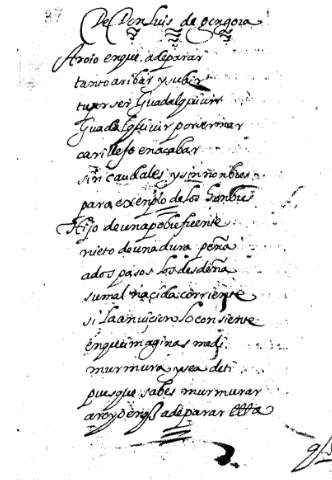 De Don luis de gongora
Aroio en que a de parar
tanto aribar y subir
tu por ser Guadalquivir
Guadalquivir por ser mar
carillejo en acabar
sin caudales y sin nombres
para exenplo de los honbres
Hijo de una pobre fuente
nieto de una dura peña
a dos pasos los desdeña
su mal nacida corriente
si la anvicion lo consiente
en que imaginas me di
murmura y sea de ti
pues que sabes murmurar
aroyo en q̃ a de parar ettta